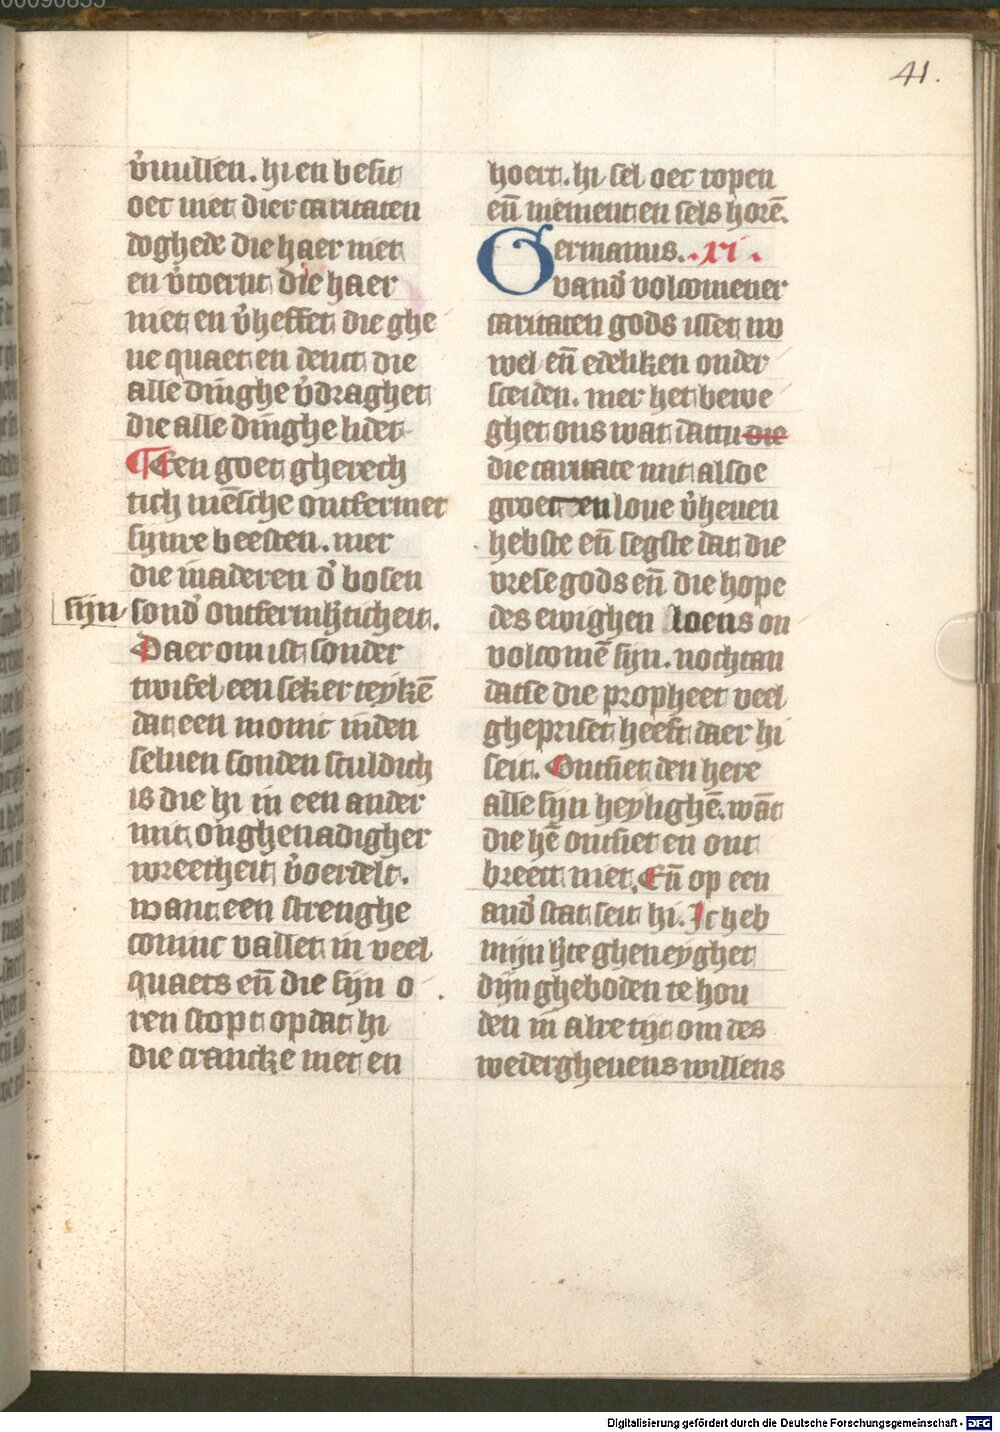 00090855
41.
v̉uullen. hi en besit
oec met dier caritaten
doghede die haer niet
en v̉toernt die haer
niet en v̉heffet die ghe
ne quaet en denct die
alle dinghe v̉draghet
die alle dinghe lidet
Een goet gherech
tich mēsche ontfermet
sijnre beesten. mer
die inaderen d̉ bosen
sijn sond̉ ontfermh̉ticheit.
Daer om ist sonder
twifel een seker teykē
dat een monic inden
seluen sonden sculdich
is die hi in een ander
mit onghenadigher
wreetheit v̉oerdelt.
want een strenghe
coninc vallet in veel
quaets en̄ die sijn o
ren stopt op dat hi
die crancke niet en
hoert. hi sel oec ropen
en̄ niement en sels horē.
Germanus. .xi.
vand̉ volcomenre
caritaten gods isset nu
wel en̄ edeliken onder
sceiden. mer het bewe
ghet ons wat dattu die
die caritate mit alsoe
groeten loue v̉heuen
hebste en̄ segste dat die
vrese gods en̄ die hope
des ewighen loens on
volcomē sijn. nochtan
datse die propheet veel
ghepriset heeft daer hi
seit. Ontsiet den here
alle sijn heylighē. wāt
die hē ontsiet en ont
breect niet. En̄ op een
and̉ stat seit hi. Ic heb
mijn h̉te gheneyghet
dijn gheboden te hou
den in alre tijt om des
wedergheuens willens
Digitalisierung gefördert durch die Deutsche Forschungsgemeinschaft - DFG